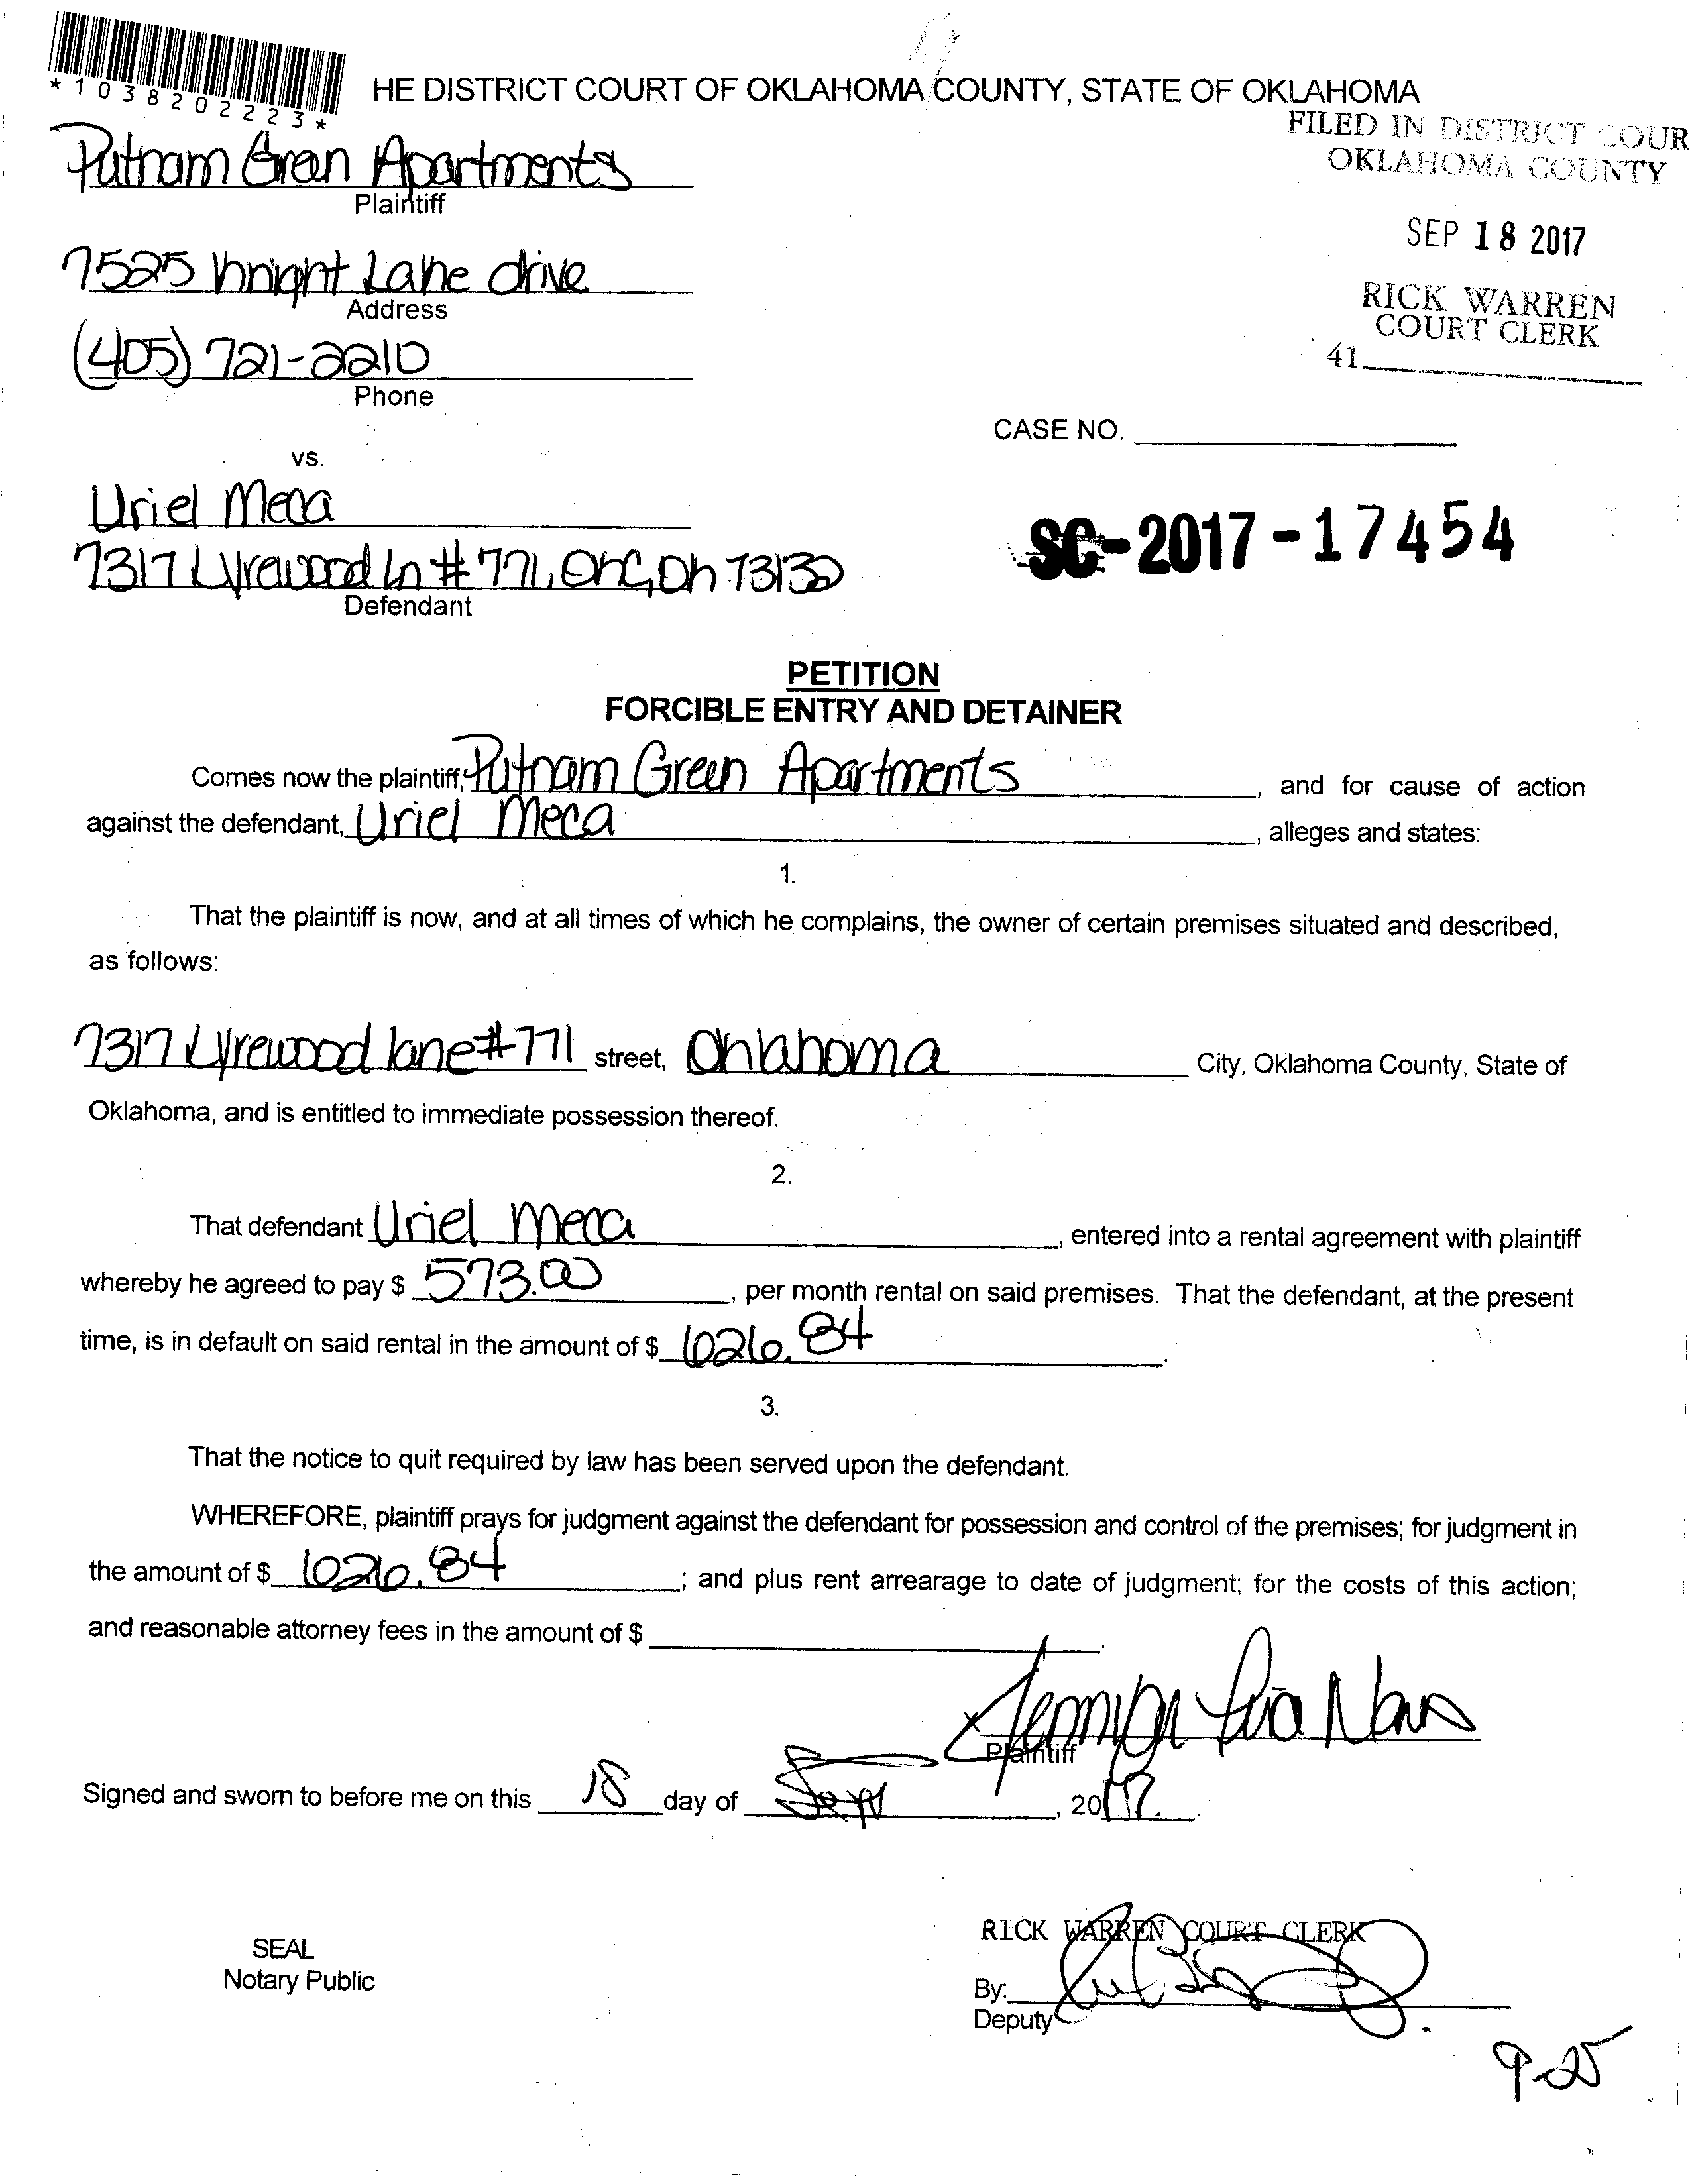 *1038202223*
HE DISTRICT COURT OF OKLAHOMA COUNTY, STATE OF OKLAHOMA
FILED IN DISTRICT COUR
OKLAHOMA COUNTY
Putnam Green Apartments
Plaintiff
SEP 18 2017
7525 Knight Lake drive
Address
RICK WARREN
COURT CLERK
(405) 721-2210
41
Phone
CASE NO.
vs.
Uriel Meca
SC-2017-17454
7317 Lyrewood Ln #771, OKC, Ok 73132
Defendant
PETITION
FORCIBLE ENTRY AND DETAINER
Comes now the plaintiff, Putnam Green Apartments, and for cause of action
against the defendant, Uriel Meca, alleges and states:
1.
That the plaintiff is now, and at all times of which he complains, the owner of certain premises situated and described,
as follows:
7317 Lyrewood lane #771 street, Oklahoma City, Oklahoma County, State of
Oklahoma, and is entitled to immediate possession thereof.
2.
That defendant Uriel Meca, entered into a rental agreement with plaintiff
whereby he agreed to pay $ 573.00, per month rental on said premises. That the defendant, at the present
time, is in default on said rental in the amount of $ 626.84.
3.
That the notice to quit required by law has been served upon the defendant.
WHEREFORE, plaintiff prays for judgment against the defendant for possession and control of the premises; for judgment in
the amount of $ 626.84; and plus rent arrearage to date of judgment; for the costs of this action;
and reasonable attorney fees in the amount of $ .
x
Plaintiff
Signed and sworn to before me on this 18 day of Sept, 2017.
RICK WARREN COURT CLERK
SEAL
Notary Public
By:
Deputy
9-25